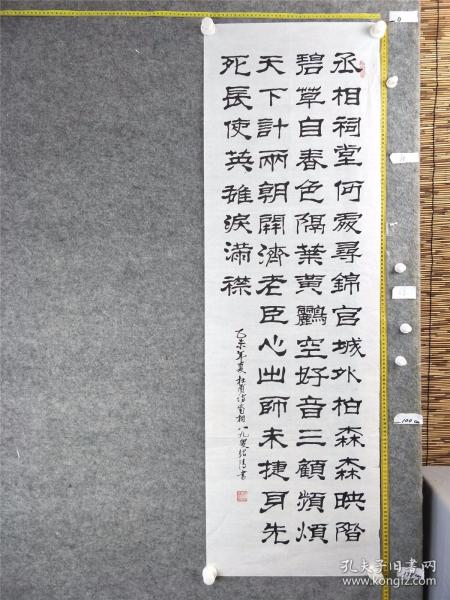 丞相祠堂何處尋錦官城外柏森森映階
碧草自春色隔葉黄鸝空好音三顧頻煩
天下計兩朝開濟老臣心出師未捷身先
死長使英雄淚滿襟
乙未年夏杜甫诗蜀相八九叟绍清書
0
100cm
孔夫子旧书网
kongfz.com